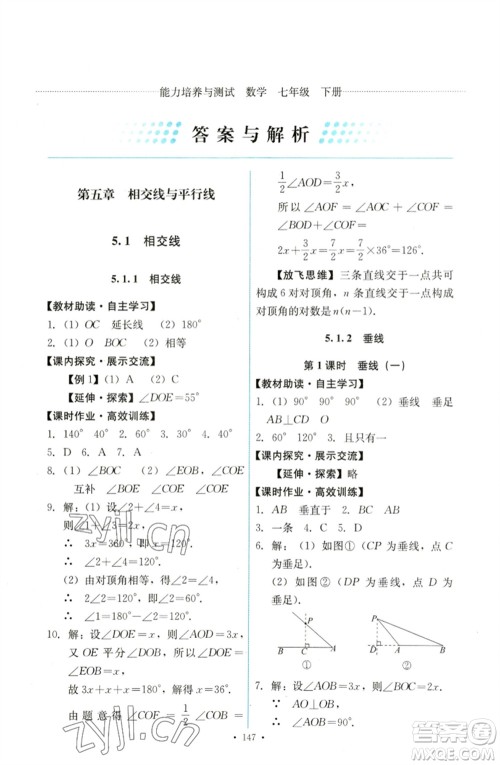 能力培养与测试 数学 七年级 下册
答案与解析
第五章 相交线与平行线
5.1 相交线
5.1.1 相交线
【教材助读·自主学习】
1. (1) OC 延长线 (2) 180°
2. (1) O BOC (2) 相等
【课内探究·展示交流】
【例1】(1) A (2) C
【延伸·探索】∠DOE=55°
【课时作业·高效训练】
1. 140° 40° 2. 60° 3. 40° 4. 180°
5. D 6. A 7. A
8. (1) ∠BOC (2) ∠EOB, ∠COE
互补 ∠BOF (3) ∠COE
9. 解: (1) 设∠2+∠4=x,
则∠1+∠3=2x.
∴ 3x=360°, 即x=120°.
∴ ∠2+∠4=120°.
(2) 由对顶角相等, 得
∠4=∠2=120°÷2=60°.
∴ ∠1=180°-∠2=120°.
10. 解: 设∠DOE=x, 则∠AOD=3x.
又由 OE 平分∠DOB, 得∠DOE=
∠EOB=x.
故 3x+x+x=180°, 解得x=36°.
由题意得∠COF=1/2∠COB=
1/2∠AOD=3/2x.
所以∠AOF=∠AOC+∠COF=
2x+3/2x=7/2x=7/2×36°=126°.
【放飞思维】三条直线交于一点共可
构成 6 对对顶角, n 条直线交于一点构成
对顶角的对数是 n(n-1).
5.1.2 垂线
第1课时 垂线(一)
【教材助读·自主学习】
1. (1) 90° 90° 90° (2) 垂线 垂足
AB⊥CD O
2. 90° 30° 60° 3. 有且只有
【课内探究·展示交流】
【延伸·探索】略
【课时作业·高效训练】
1. AB 垂直于 CD O 2. 90°
3. 一条 4. C 5. D
6. 解: (1) 如图① (CP 为垂线, C
为垂足).
(2) 如图② (DP 为垂线, D 为
垂足).
P
B C A
①
P
D A
②
7. 解: 设∠BOC=x, 则∠AOC=3x.
∵ AO⊥OB,
∴ ∠AOB=90°.
· 147 ·
zyjl.cn
zyjl.cn
答案圈
MXQE.COM